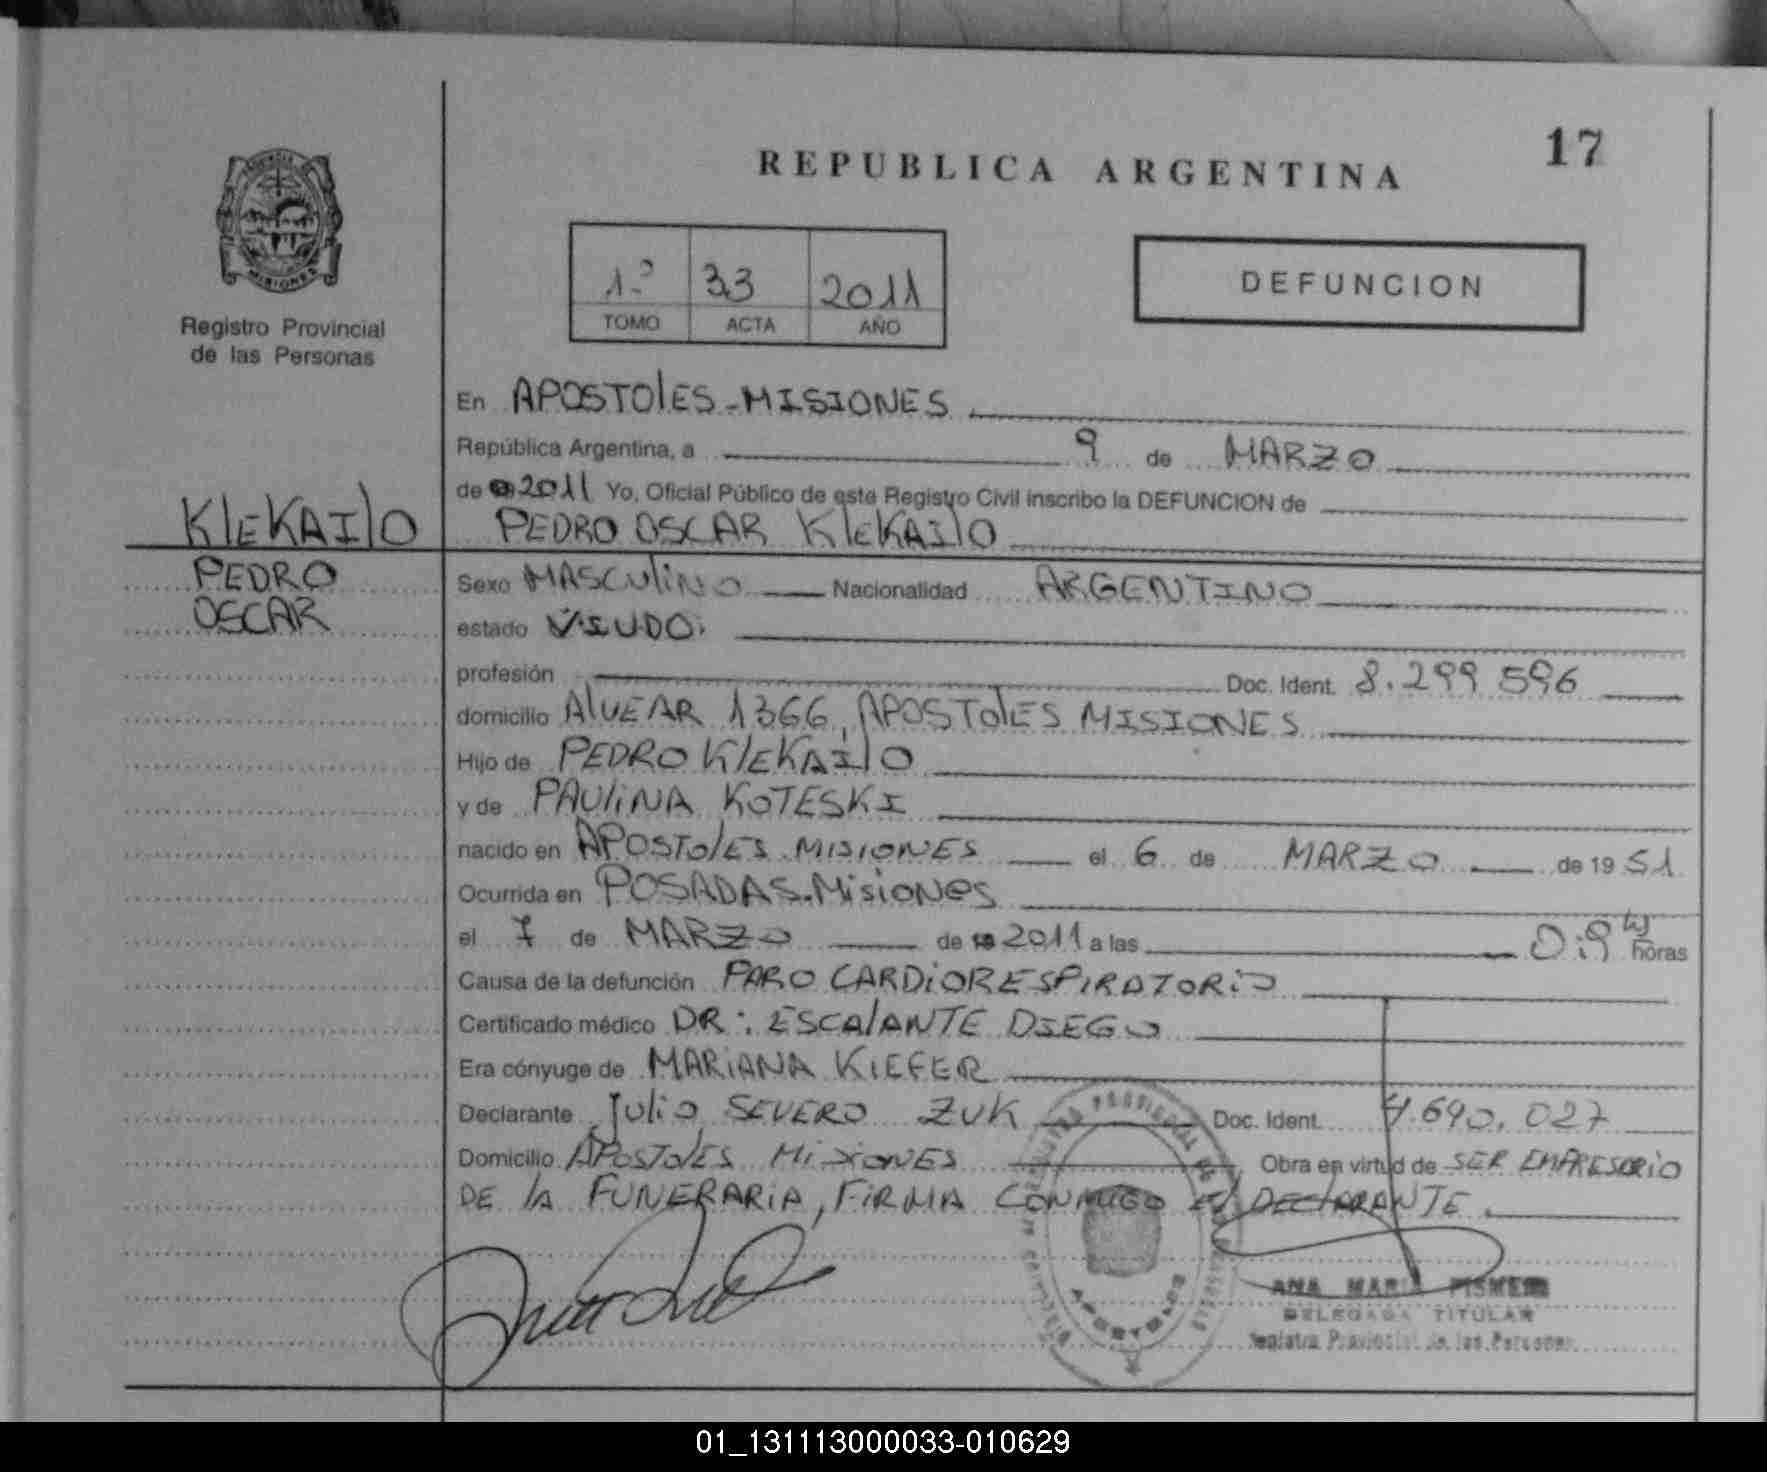 17
REPUBLICA ARGENTINA
PROVINCIA
MISIONES
Registro Provincial
de las Personas
1º 33 2011
TOMO ACTA AÑO
DEFUNCION
En APOSTOlES-MISIONES
República Argentina, a 9 de MARZO
de 2011 Yo, Oficial Público de este Registro Civil inscribo la DEFUNCION de
KlEKAIlO
PEDRO OSCAR KlEKAIlO
PEDRO
OSCAR
Sexo MASCUliNO Nacionalidad ARGENTINO
estado VIUDO.
profesión Doc. Ident. 8.299 596
domicilio AlVEAR 1366, APOSTOlES MISIONES
Hijo de PEDRO KlEKAIlO
y de PAUliNA KOTESKI
nacido en APOSTOlES MISIONES el 6 de MARZO de 19 51
Ocurrida en POSADAS-MisiONES
el 7 de MARZO de 2011 a las 0:9 hs horas
Causa de la defunción PARO CARDiORESPIRATORiO
Certificado médico DR: ESCAlANTE DIEGO
Era cónyuge de MARiANA KIEFER
Declarante Julio SEVERO ZUK Doc. Ident. 7.690.027
Domicilio APOSTOlES MisiONES Obra en virtud de SER EMPRESARiO
DE lA FUNERARiA, FiRMA CONMIGO El DEClARANTE.
REGISTRO PROVINCIAL DE LAS PERSONAS
APOSTOLES
ANA MARIA
DELEGADA TITULAR
Registro Provincial de las Personas
01_131113000033-010629